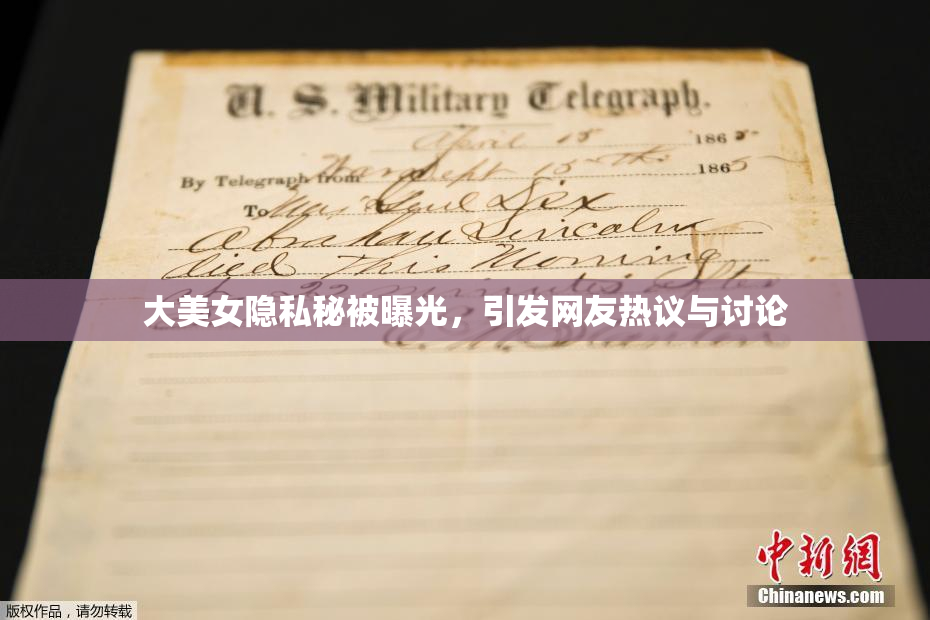 U. S. Military Telegraph.
April 15 1865
By Telegraph from War Dept 15th 1865
To Maj Genl Dix
Abraham Lincoln
died this Morning
at 22 minutes after
大美女隐私秘被曝光，引发网友热议与讨论
E. M. Stanton
中新网
Chinanews.com
版权作品，请勿转载